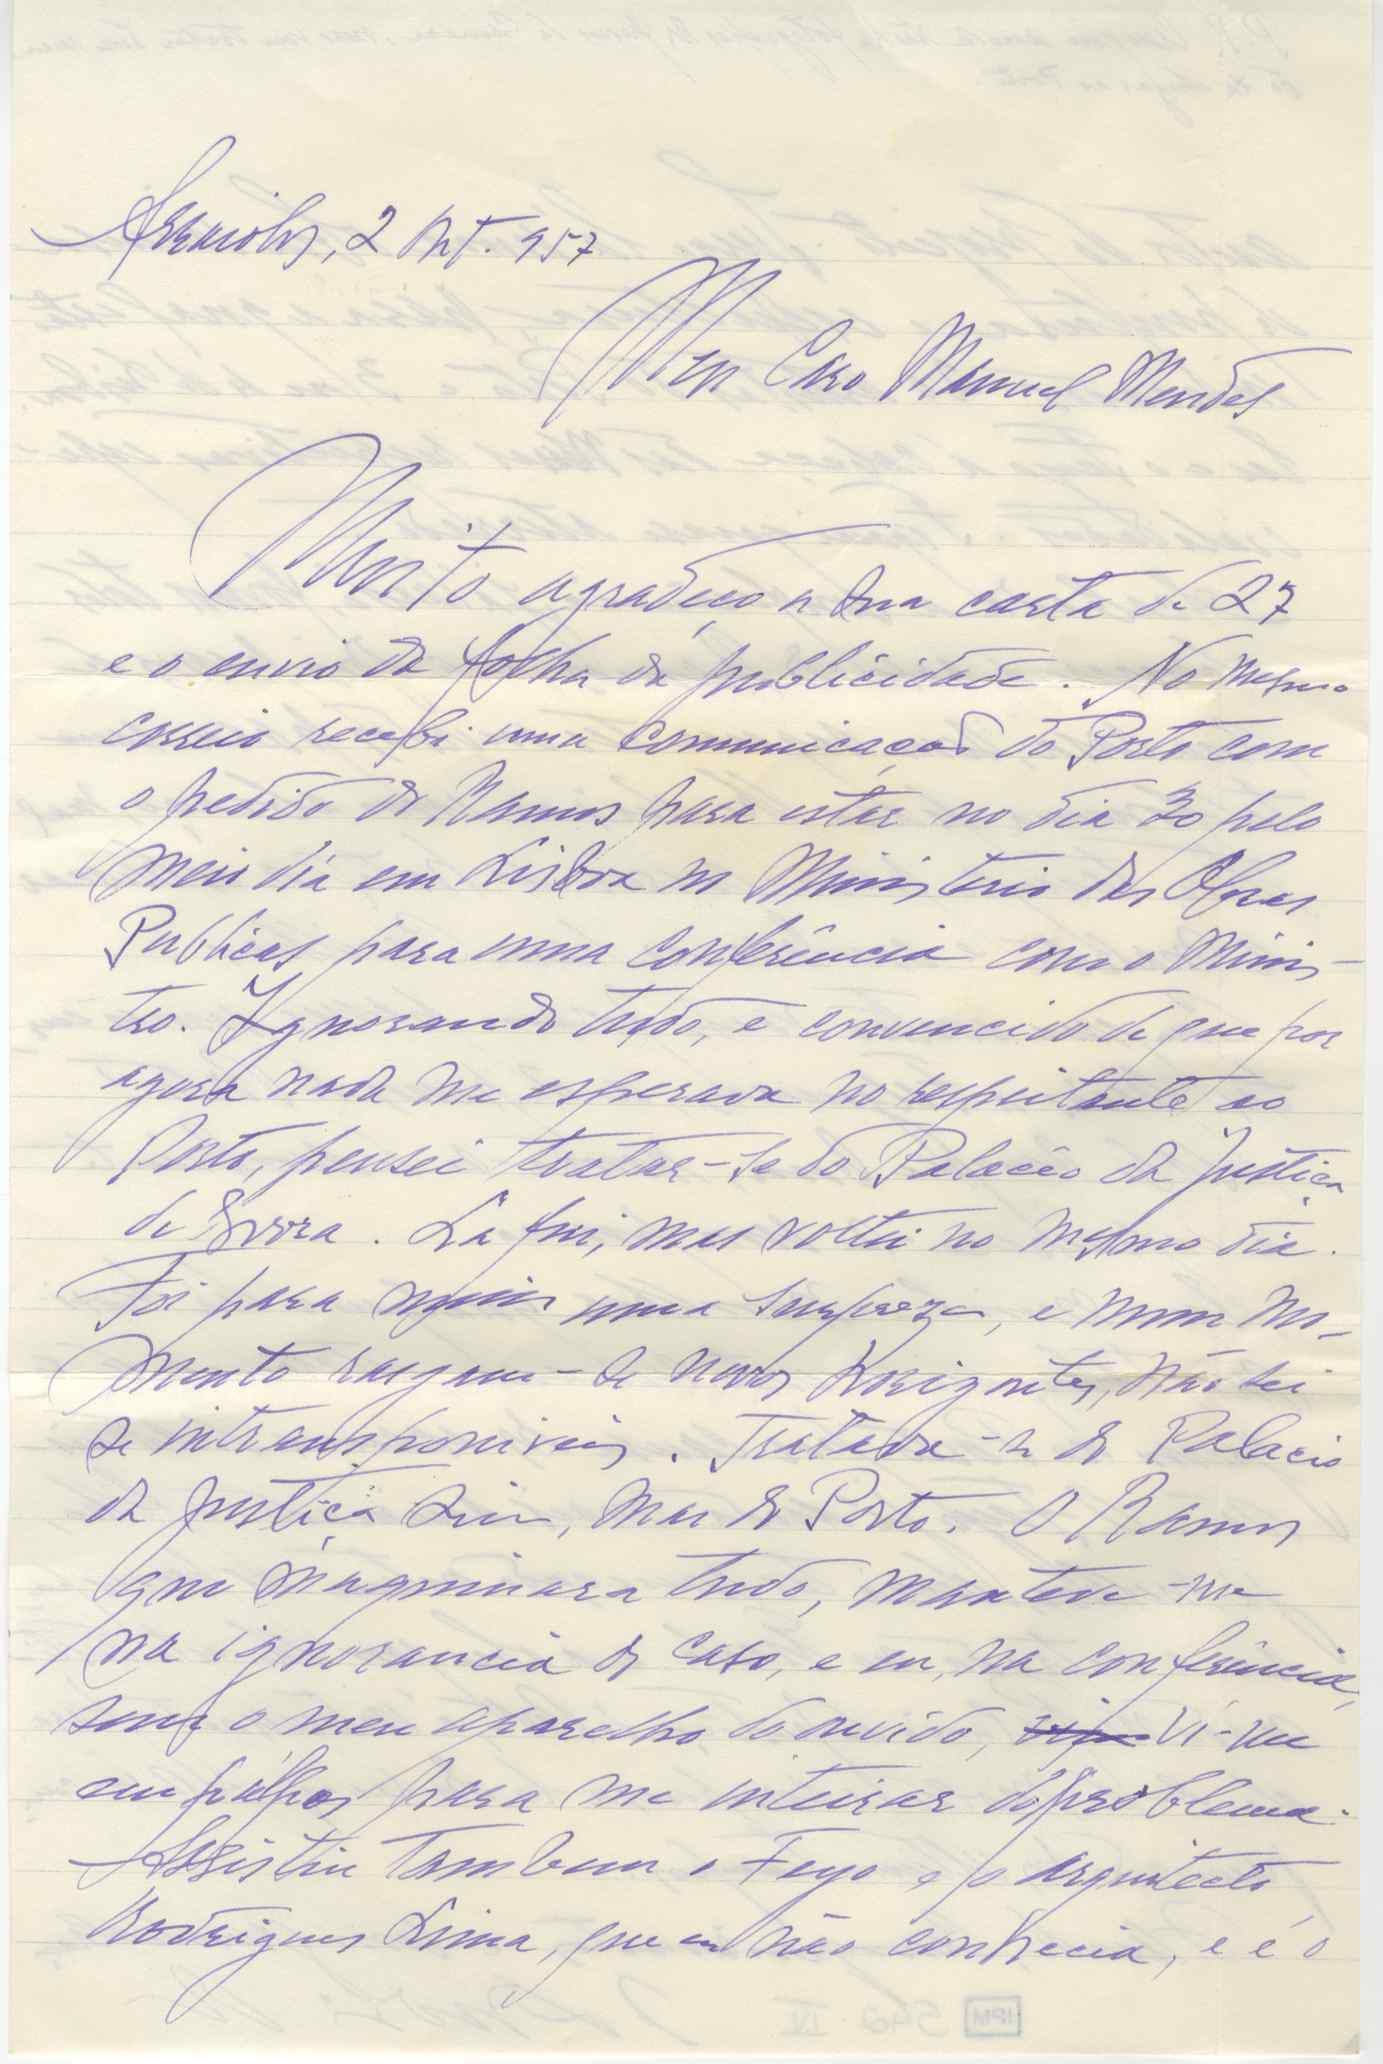 Arraiolos, 2 Out. 957
Meu Caro Manuel Mendes
Muito agradeço a sua carta de 27
e o envio da folha da publicidade. No mesmo
correio recebi uma comunicação do Porto com
o pedido do Ramos para estar no dia 30 pelo
meio dia em Lisboa no Ministerio das Obras
Publicas para uma conferência com o Minis-
tro. Ignorando tudo, e convencido de que por
agora nada me esperava no respeitante ao
Porto, pensei tratar-se do Palacio da Justiça
de Evora. La fui, mas voltei no mesmo dia.
Foi para mim uma surpreza, e num mo-
mento rasgam-se novos horizontes, não sei
se intransponiveis. Tratava-se do Palacio
da Justiça sim, mas do Porto. O Ramos
que maquinara tudo, manteve-me
na ignorancia do caso, e eu, na conferência,
sem o meu aparelho do ouvido, vi-me
em pálpos para me inteirar do problema.
Assistiu tambem o Feyo e o arquitecto
Rodrigues Lima, que eu não conhecia, e é o
IPM 542 IV